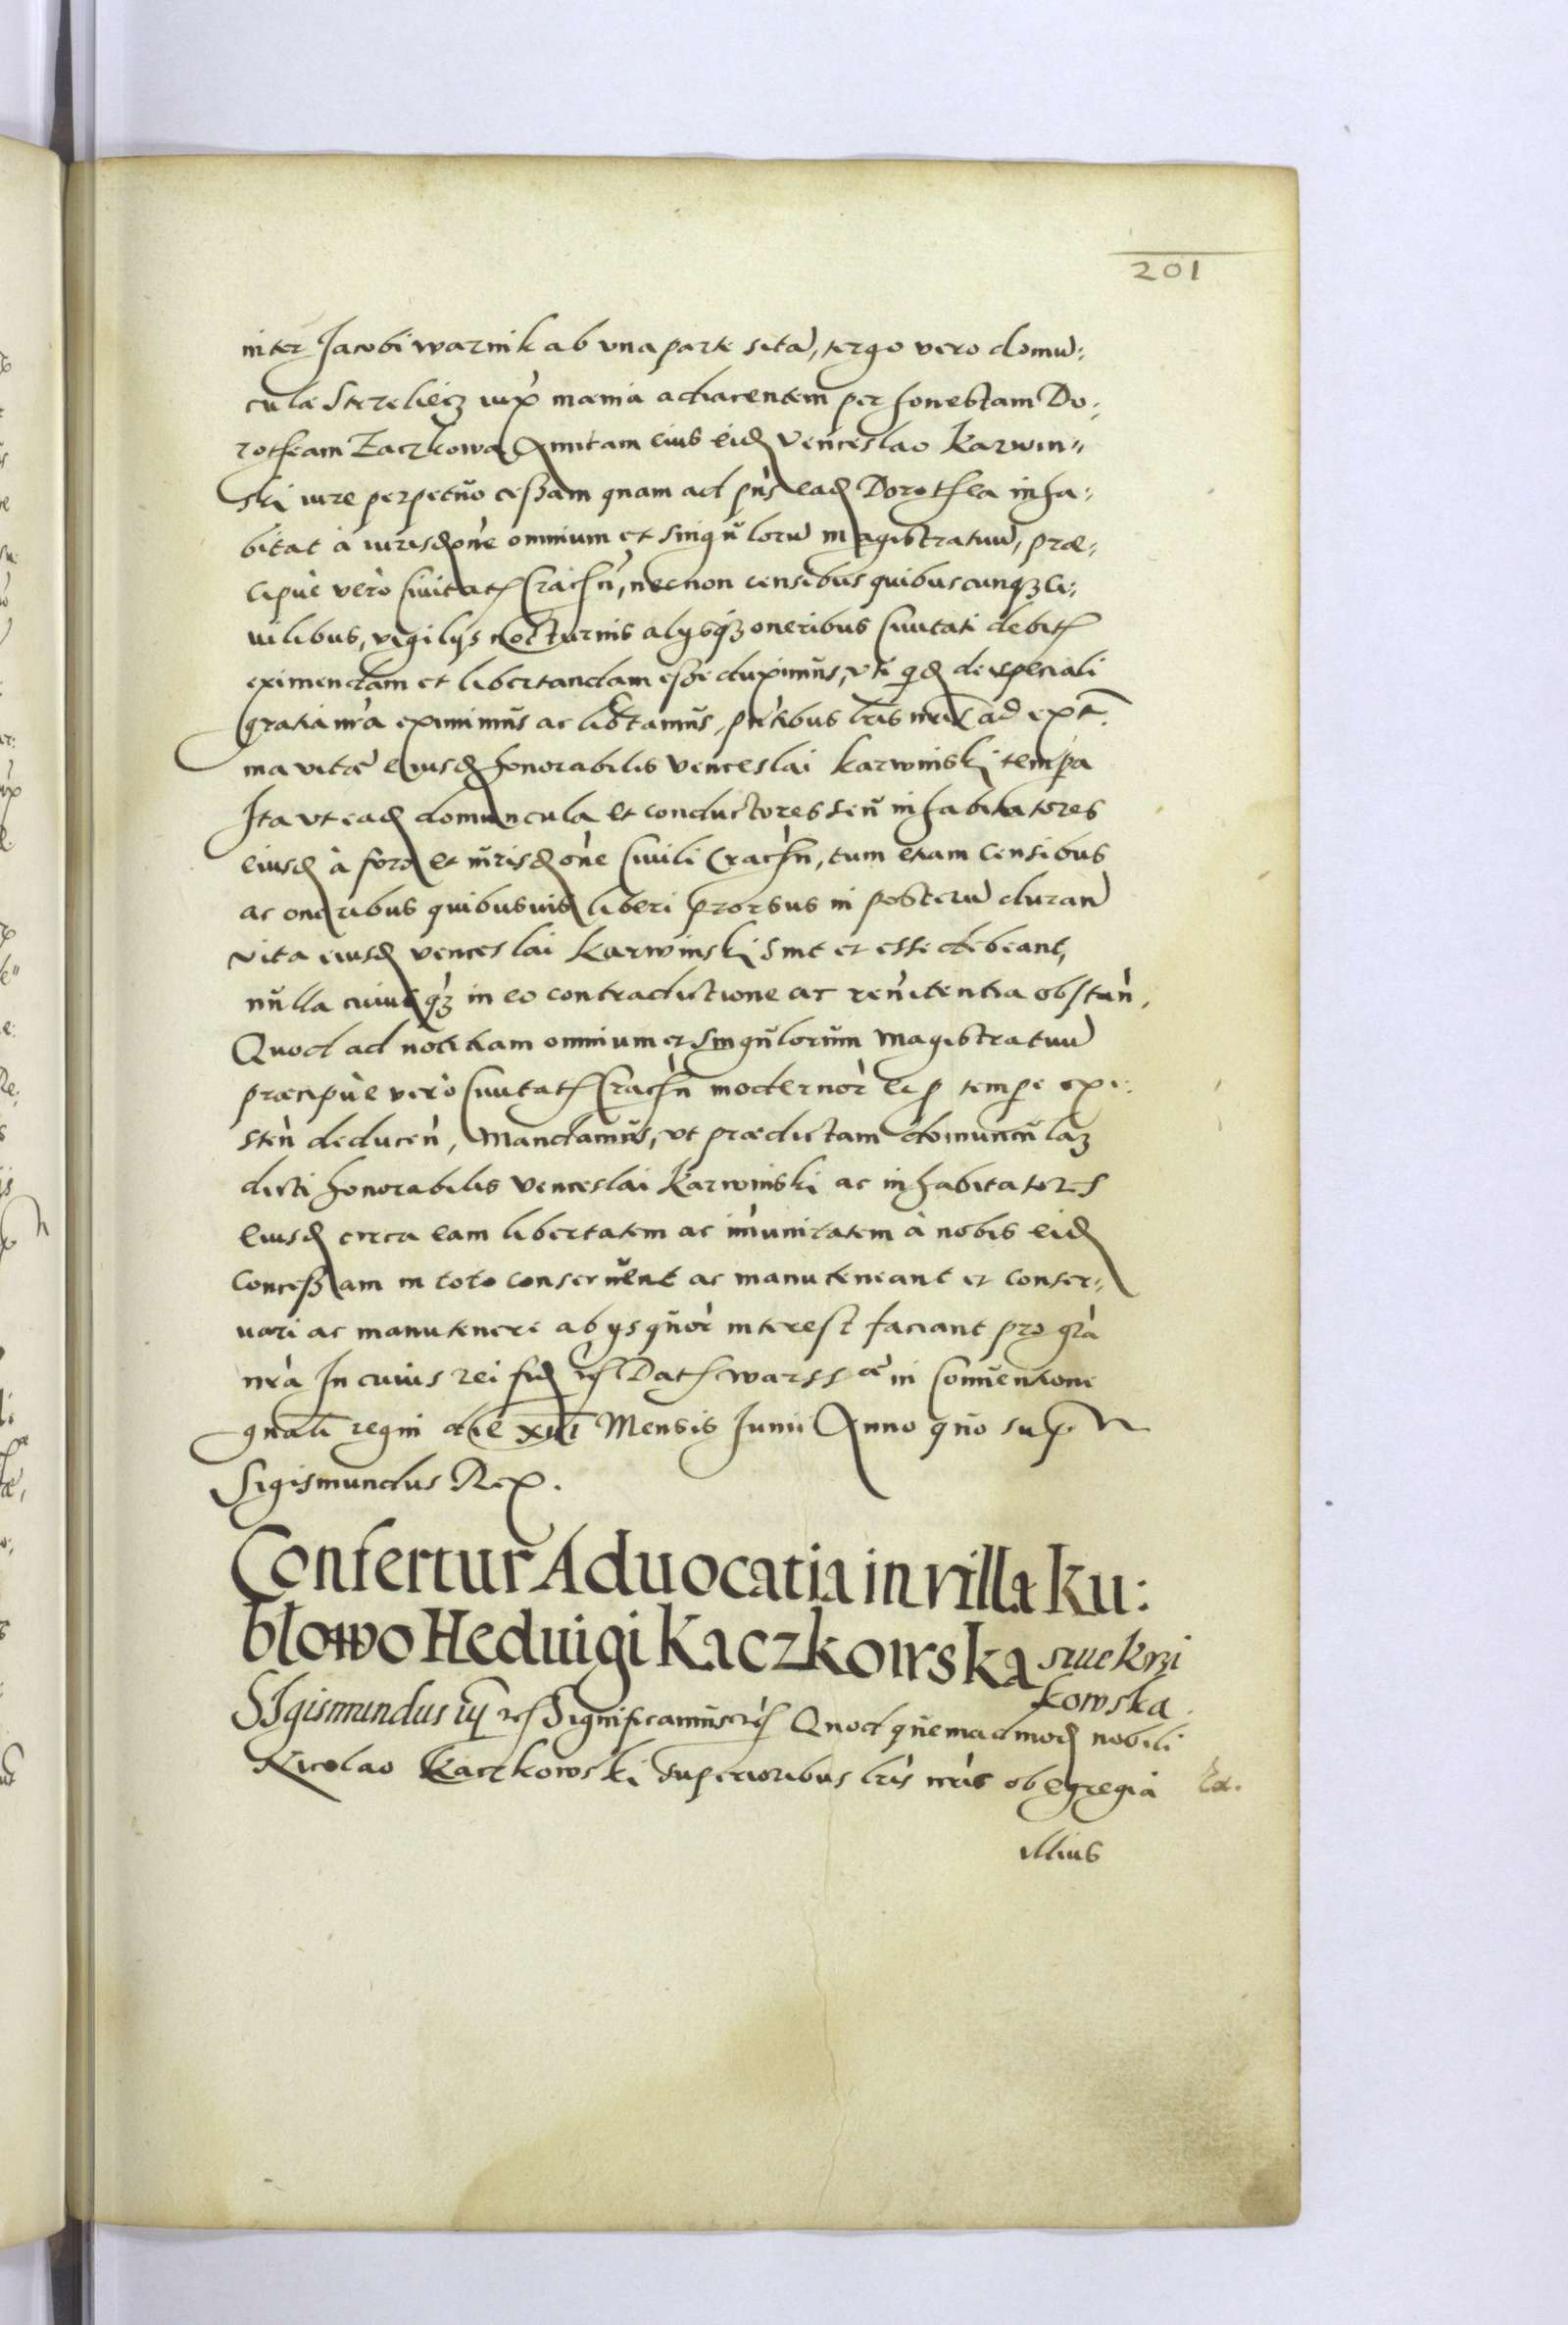 201
inter Jacobi warnik ab vna parte sitã, tergo vero domũ:
culæ Strzeliecz iuxᵃ mænia adiacentem per honestam Do:
rotheam Zaczkowa Amitam eius eid Venceslao Karwin„
ski iure perpetuo cessam quam ad pñs ead Dorothea inha:
bitat à iurisdõne omnium et singulorũ magistratuũ, præ:
cipuè verò Ciuitatis Crachñ, necnon censibus quibuscunqꝫ ci:
uilibus, vigilijs nocturnis alijsqꝫ oneribus Ciuitati debitis
eximendam et libertandam esse duximus, vti qd de speciali
gratia nrã eximimus ac libtamus, pñtibus lris nris ad exᵗ:
ma vitæ eiusd honorabilis Venceslai Karwinski tempa
Ita vt ead domuncula et conductores seu inhabitatores
eiusd à foro et iurisdõne Ciuili Crachñ, tum etiam Censibus
ac oneribus quibusuis liberi prorsus in posterũ duran
vita eiusd Venceslai Karwinski sint et esse debeant,
nulla cuiusqꝫ in eo contradictione ac renitentia obstañ.
Quod ad notitiam omnium et singulorum Magistratuũ
præcipuè verò Ciuitatis Crachñ modernor et p tempe exi:
steñ deduceñ, Mandamus, vt prædictam domunculaꝫ
dicti honorabilis Venceslai Karwinski ac inhabitatores
eiusd circa eam libertatem ac imunitatem à nobis eid
Concessam in toto conseruent ac manuteneant et conser„
uari ac manuteneri ab ijs quor interest faciant pro grã
nrã In cuius rei fid etc Datis Warssæ in Conuentione
gnali regni die XIII Mensis Junii Anno quo sup
Sigismundus Rex.
Confertur Aduocatia in villa Ku:
blowo Heduigi Kaczkowska siue krzi
kowska
SIgismundus iij etc Significamus etc Quod quemadmod nobili
Nicolao Kaczkowski superioribus lris nris ob egregia
illius